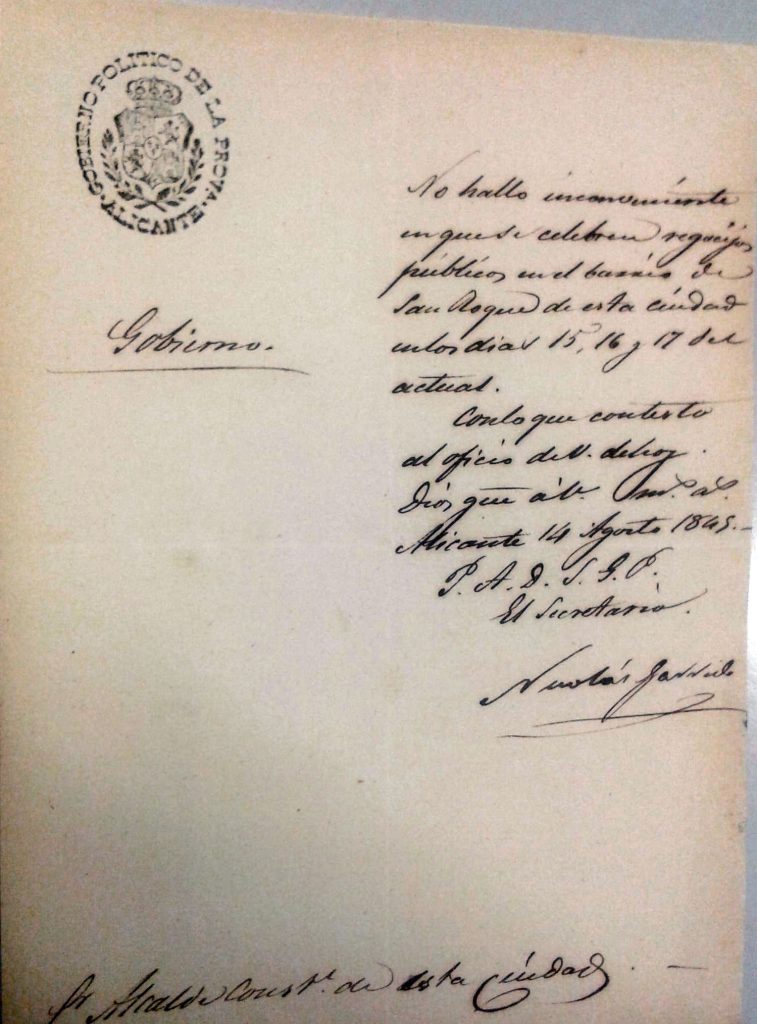 GOBIERNO POLITICO DE LA PROVA. ALICANTE.
Gobierno.
No hallo inconveniente
en que se celebren regocijos
públicos en el barrio de
San Roque de esta ciudad
en los dias 15, 16 y 17 del
actual.
Con lo que contesto
al oficio de V. de hoy.
Dios gue á V. ms. as.
Alicante 14 Agosto 1845.
P. A. D. S. G. P.
El Secretario.
Nicolás Garrido
Sr Alcalde Const.l de esta Ciudad.